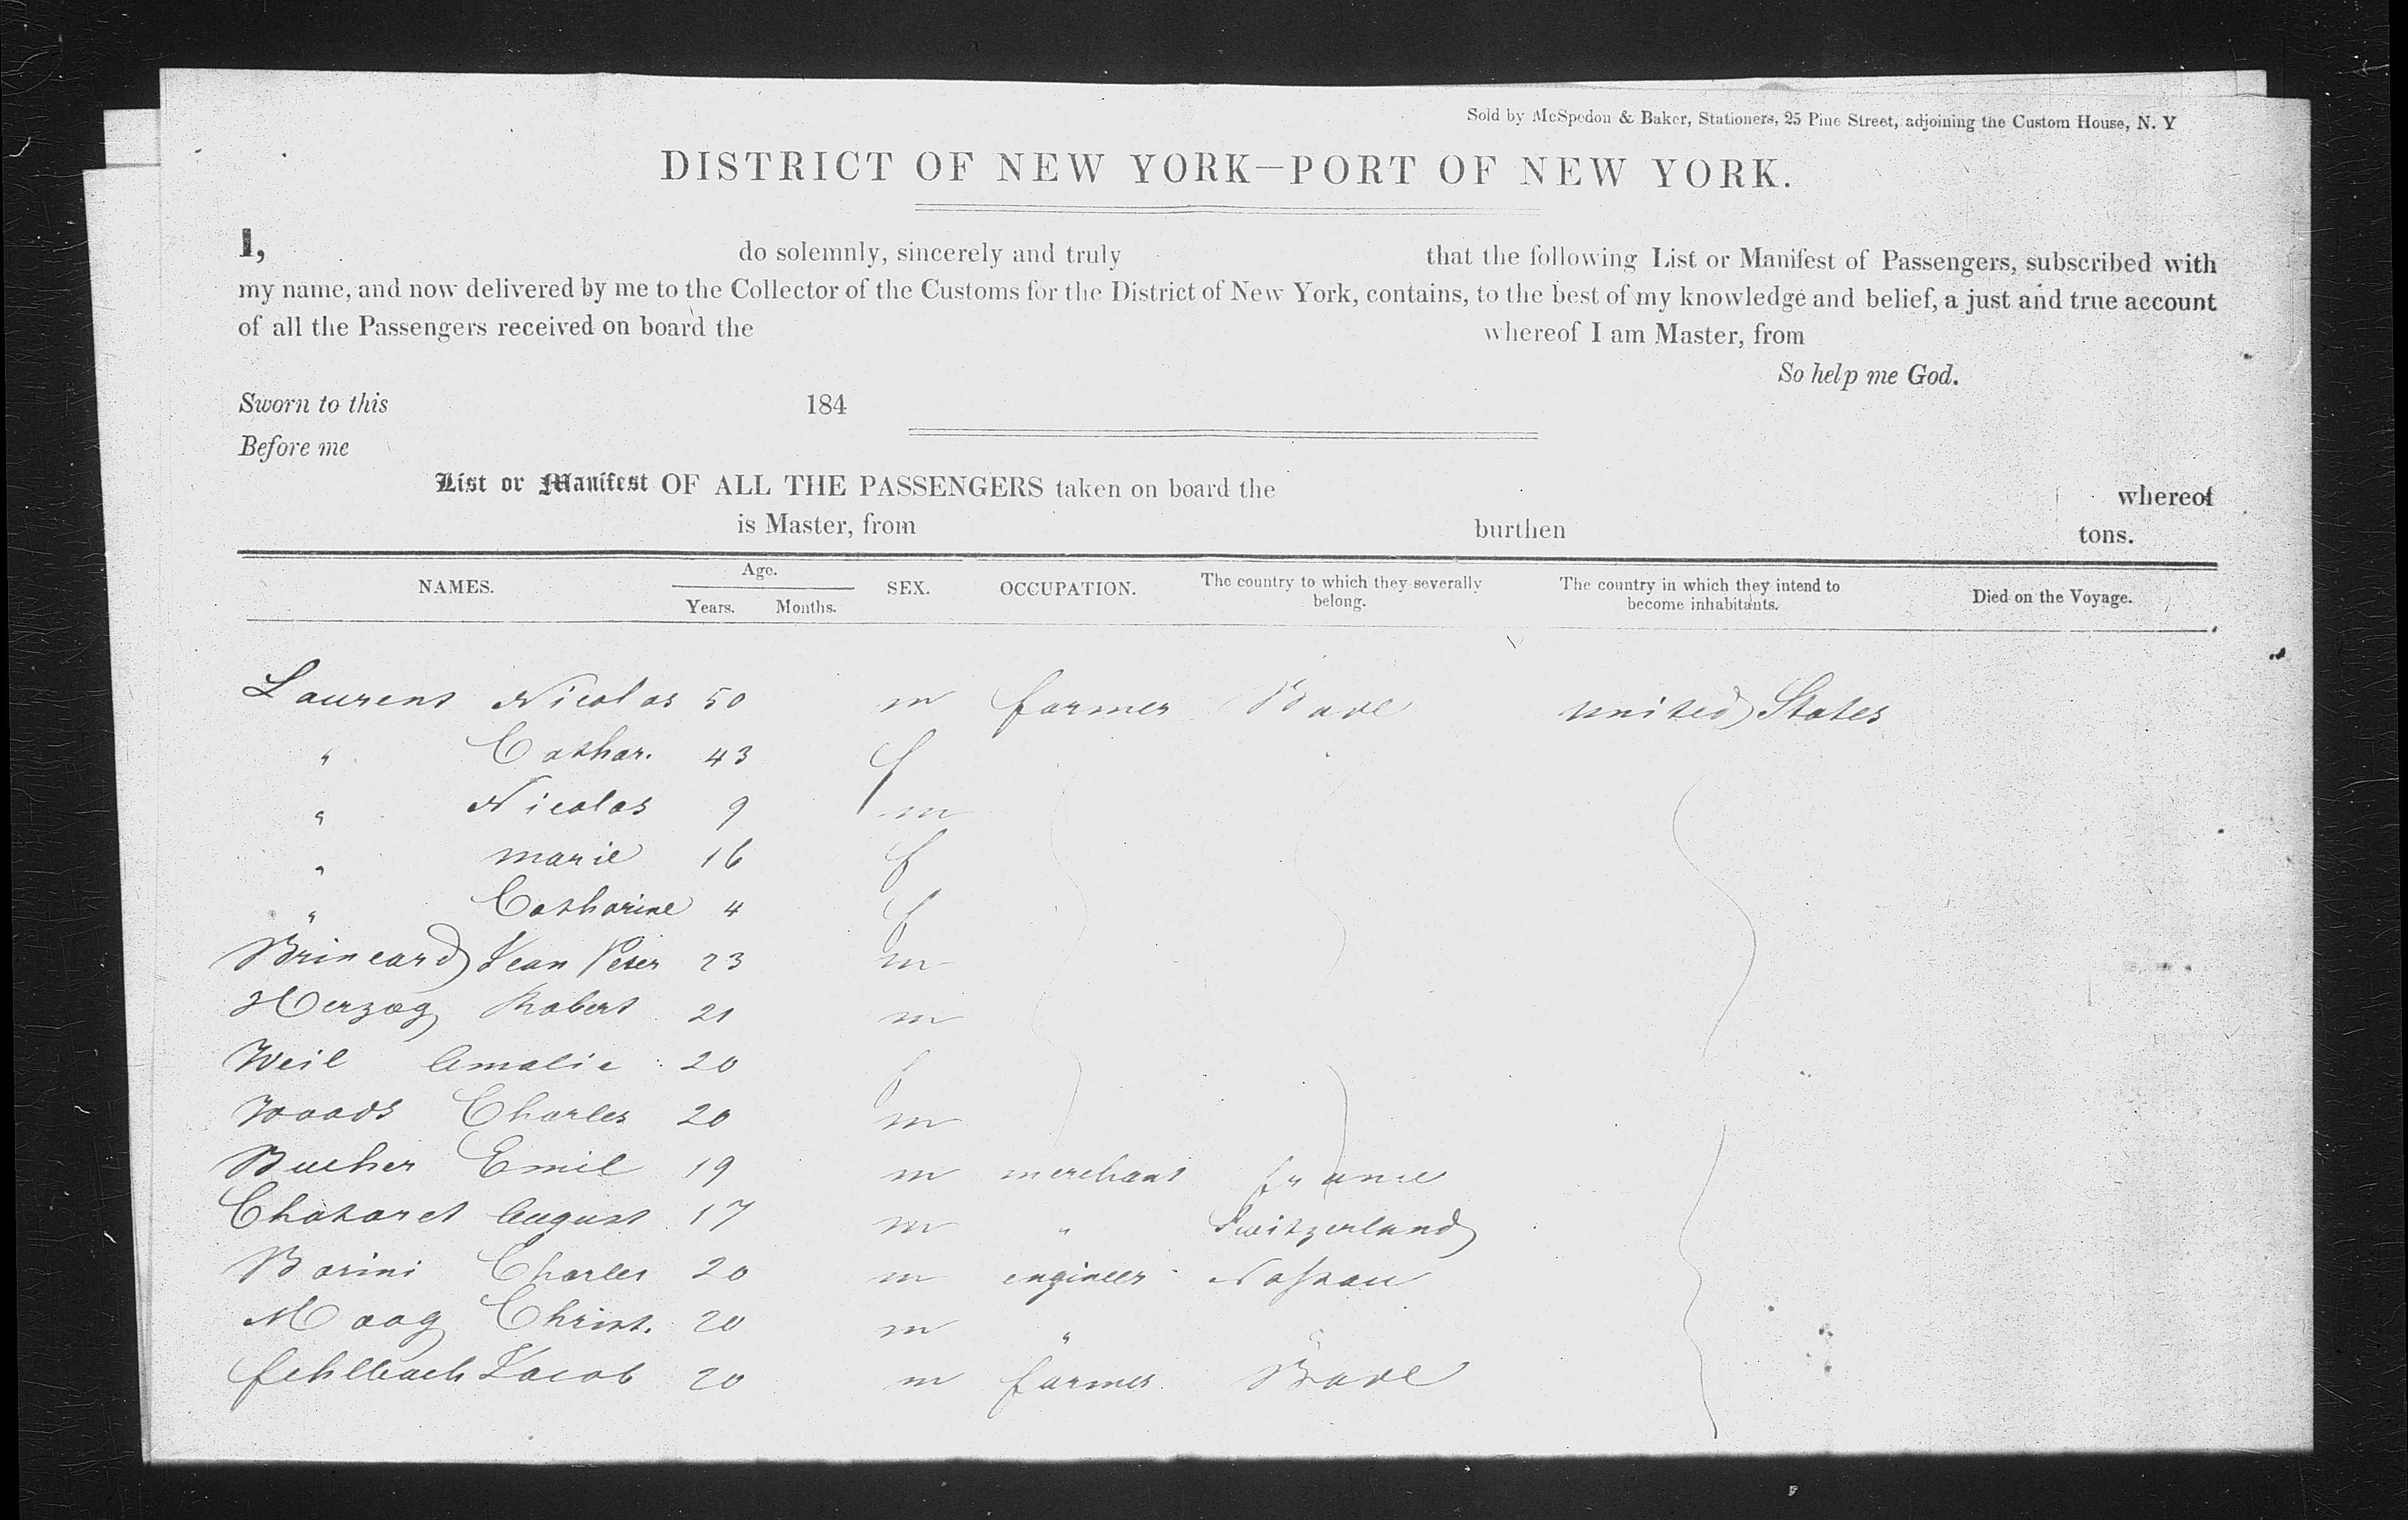 Sold by McSpedon & Baker, Stationers, 25 Pine Street, adjoining the Custom House, N. Y
DISTRICT OF NEW YORK—PORT OF NEW YORK.
I, do solemnly, sincerely and truly that the following List or Manifest of Passengers, subscribed with
my name, and now delivered by me to the Collector of the Customs for the District of New York, contains, to the best of my knowledge and belief, a just and true account
of all the Passengers received on board the whereof I am Master, from
So help me God.
Sworn to this 184
Before me
List or Manifest OF ALL THE PASSENGERS taken on board the whereof
is Master, from burthen tons.
NAMES. Age. Years. Months. SEX. OCCUPATION. The country to which they severally belong. The country in which they intend to become inhabitants. Died on the Voyage.
Laurent Nicolas 50 m farmer Bade united States
" Cathar. 43 f
" Nicolas 9 m
" marie 16 f
" Catharine 4 f
Brincard Jean Peter 23 m
Herzog Robert 21 m
Weil Amalie 20 f
Woods Charles 20 m
Bucher Emil 19 m merchant france
Chataret August 17 m " Switzerland
Barini Charles 20 m engineer Nassau
Moog Christ. 20 m " "
Jacob 20 m farmer Bade